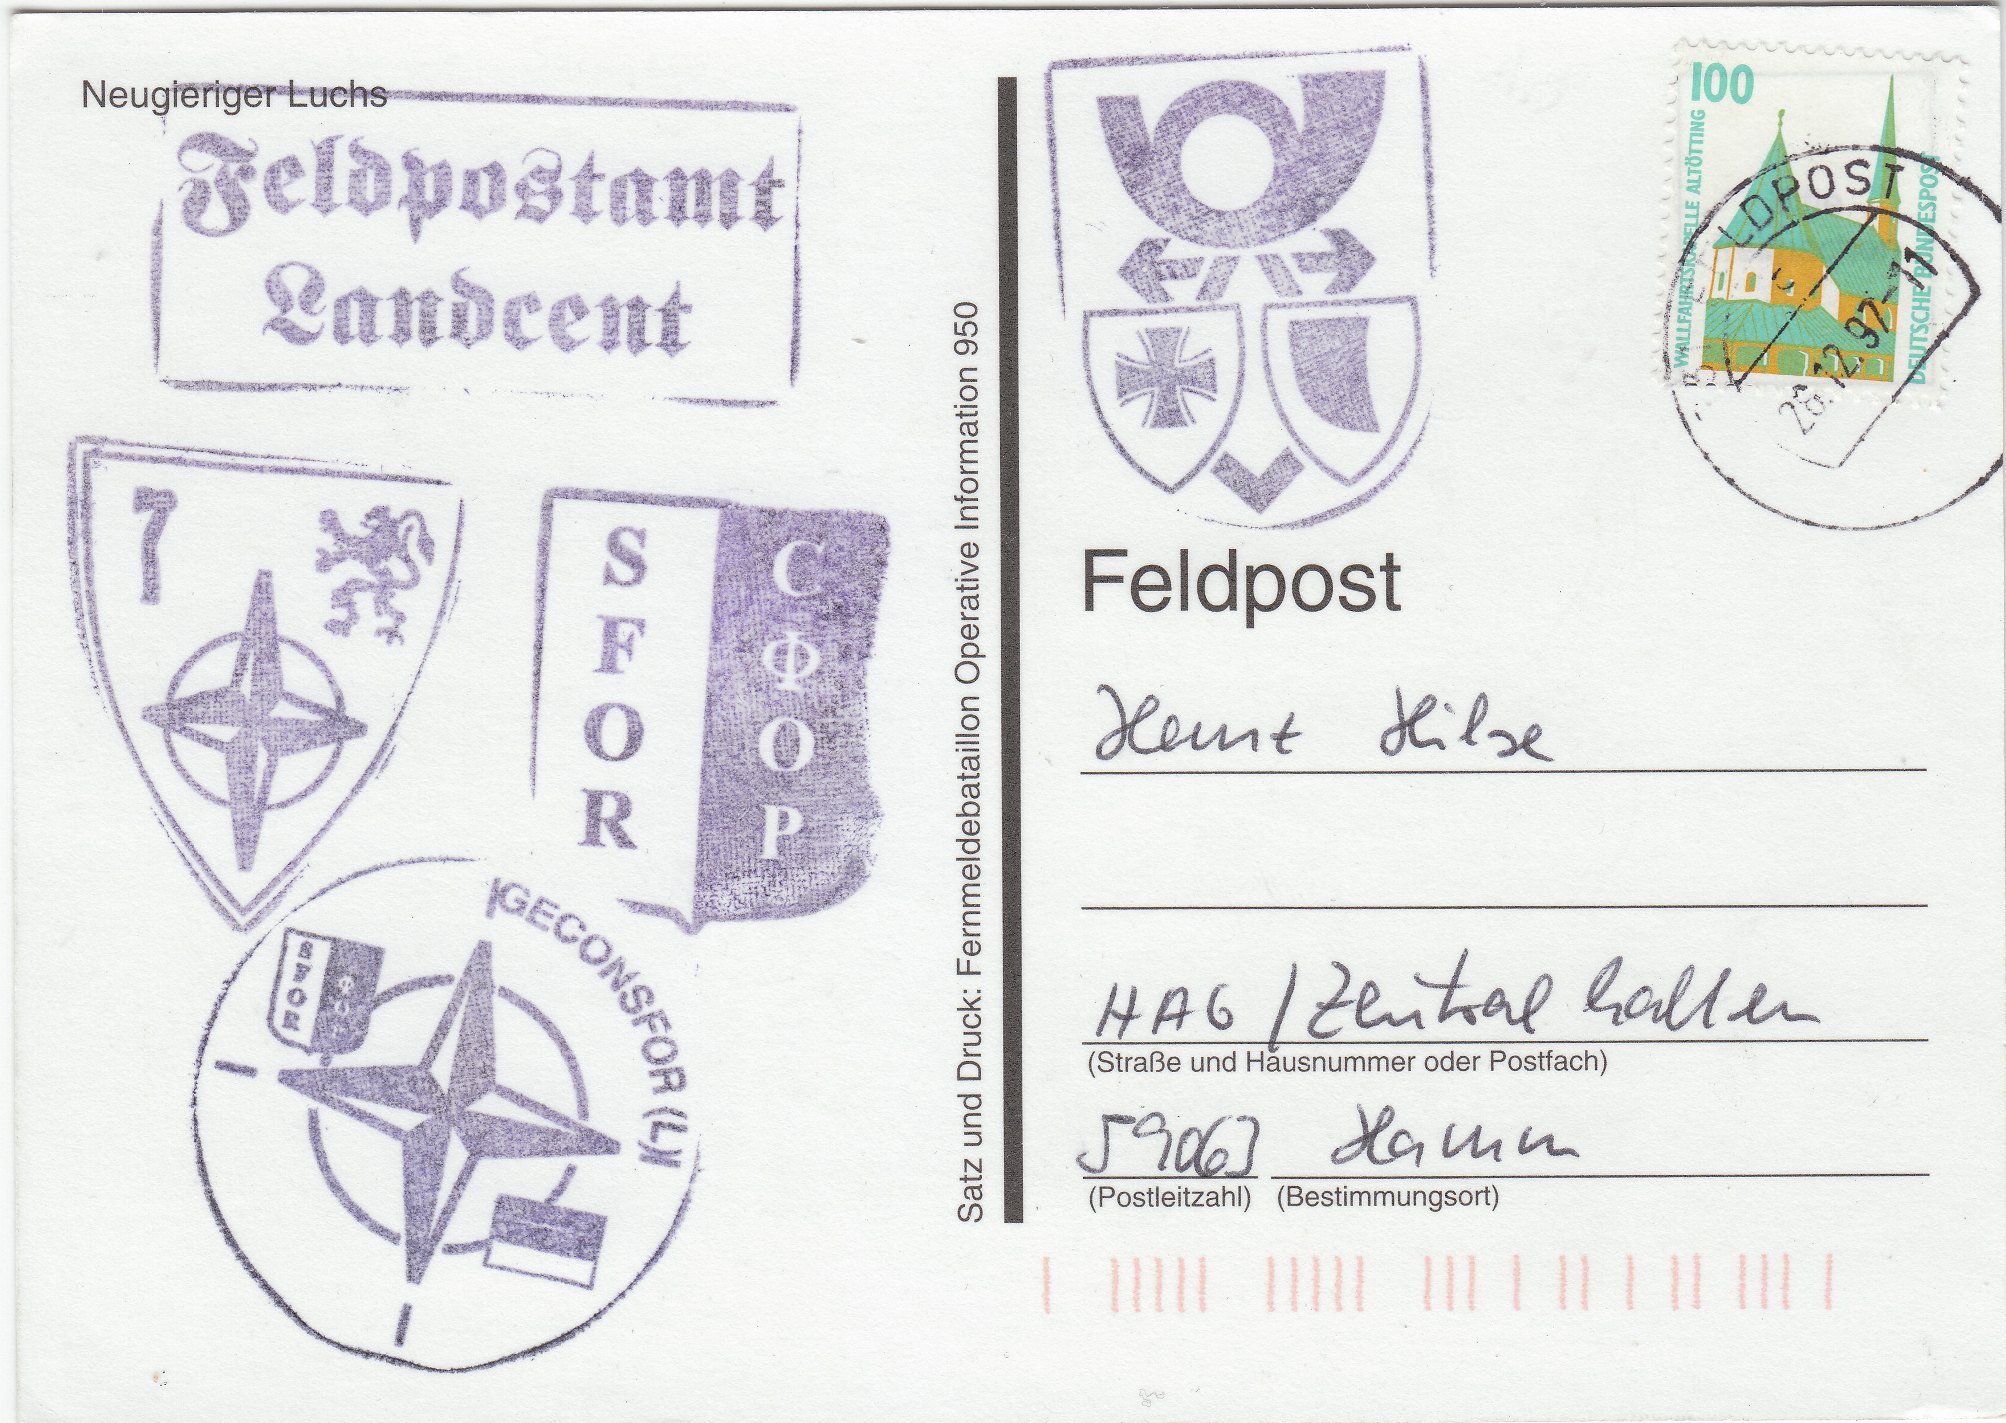 Neugieriger Luchs
Feldpostamt
Landcent
7
SFOR
СФОР
GECONSFOR (L)
SFOR
Satz und Druck: Fernmeldebataillon Operative Information 950
100
WALLFAHRTSKAPELLE ALTÖTTING
DEUTSCHE BUNDESPOST
FELDPOST
28.12.97-11
Feldpost
Heinz Hilse
HAG / Zentralhallen
(Straße und Hausnummer oder Postfach)
59063 Hamm
(Postleitzahl) (Bestimmungsort)